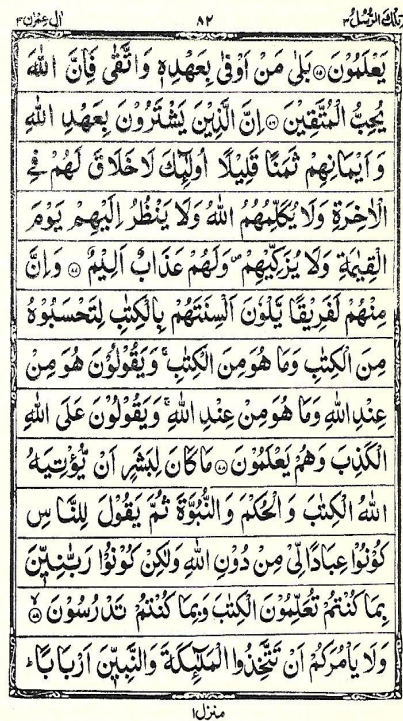 تلك الرسل ٣ ٨٢ ال عمرٰن ٣
يَعْلَمُوْنَ ﴿۷۵﴾ بَلٰى مَنْ اَوْفٰى بِعَهْدِهٖ وَاتَّقٰى فَاِنَّ اللّٰهَ
يُحِبُّ الْمُتَّقِيْنَ ﴿۷۶﴾ اِنَّ الَّذِيْنَ يَشْتَرُوْنَ بِعَهْدِ اللّٰهِ
وَاَيْمَانِهِمْ ثَمَنًا قَلِيْلًا اُولٰٓئِكَ لَا خَلَاقَ لَهُمْ فِى
الْاٰخِرَةِ وَلَا يُكَلِّمُهُمُ اللّٰهُ وَلَا يَنْظُرُ اِلَيْهِمْ يَوْمَ
الْقِيٰمَةِ وَلَا يُزَكِّيْهِمْ ۪ وَلَهُمْ عَذَابٌ اَلِيْمٌ ﴿۷۷﴾ وَاِنَّ
مِنْهُمْ لَفَرِيْقًا يَّلْوٗنَ اَلْسِنَتَهُمْ بِالْكِتٰبِ لِتَحْسَبُوْهُ
مِنَ الْكِتٰبِ وَمَا هُوَ مِنَ الْكِتٰبِ ۚ وَيَقُوْلُوْنَ هُوَ مِنْ
عِنْدِ اللّٰهِ وَمَا هُوَ مِنْ عِنْدِ اللّٰهِ ۚ وَيَقُوْلُوْنَ عَلَى اللّٰهِ
الْكَذِبَ وَهُمْ يَعْلَمُوْنَ ﴿۷۸﴾ مَا كَانَ لِبَشَرٍ اَنْ يُّؤْتِيَهُ
اللّٰهُ الْكِتٰبَ وَالْحُكْمَ وَالنُّبُوَّةَ ثُمَّ يَقُوْلَ لِلنَّاسِ
كُوْنُوْا عِبَادًا لِّىْ مِنْ دُوْنِ اللّٰهِ وَلٰكِنْ كُوْنُوْا رَبّٰنِيّٖنَ
بِمَا كُنْتُمْ تُعَلِّمُوْنَ الْكِتٰبَ وَبِمَا كُنْتُمْ تَدْرُسُوْنَ ﴿۷۹﴾ ۙ
وَلَا يَاْمُرَكُمْ اَنْ تَتَّخِذُوا الْمَلٰٓئِكَةَ وَالنَّبِيّٖنَ اَرْبَابًا ؕ
منزل ١